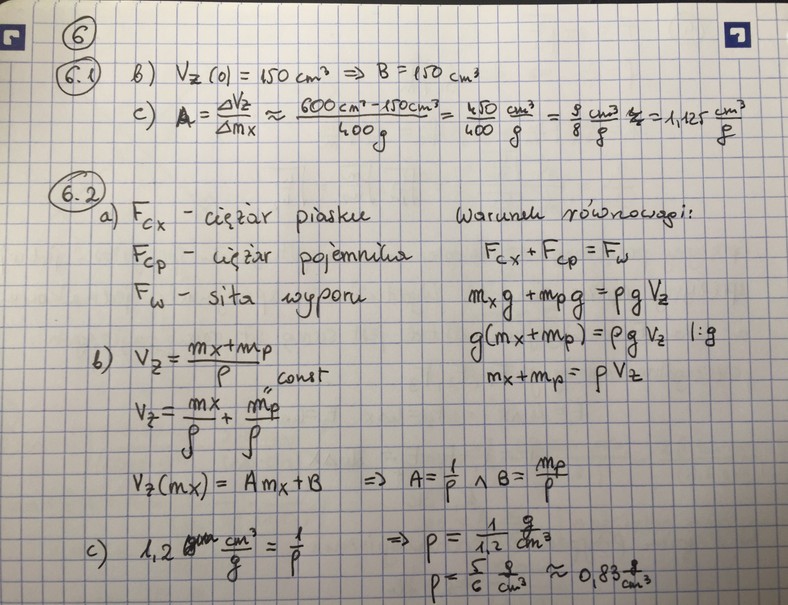 6
6.1 b) Vz(0) = 150 cm³ ⇒ B = 150 cm³
c) A = ΔVz/Δmx ≈ (600 cm³ - 150 cm³)/400 g = 450/400 cm³/g = 9/8 cm³/g = 1,125 cm³/g
6.2
a) Fcx - ciężar piasku
Fcp - ciężar pojemnika
Fw - siła wyporu
Warunek równowagi:
Fcx + Fcp = Fw
mx g + mp g = ρ g Vz
g(mx + mp) = ρ g Vz |:g
mx + mp = ρ Vz
b) Vz = (mx + mp)/ρ
const
Vz = mx/ρ + mp/ρ
Vz(mx) = A mx + B ⇒ A = 1/ρ ∧ B = mp/ρ
c) 1,2 cm³/g = 1/ρ ⇒ ρ = 1/1,2 g/cm³
ρ = 5/6 g/cm³ ≈ 0,83 g/cm³